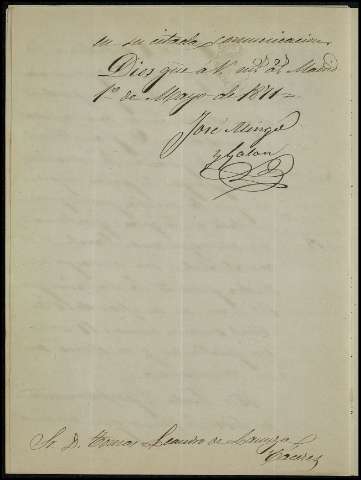 en su citada comunicacion
Dios gue a V. ms. as. Madrid
1º de Mayo de 1871=
José Minge
y Galan
Sr. D. Tomas Leandro de
Cáceres